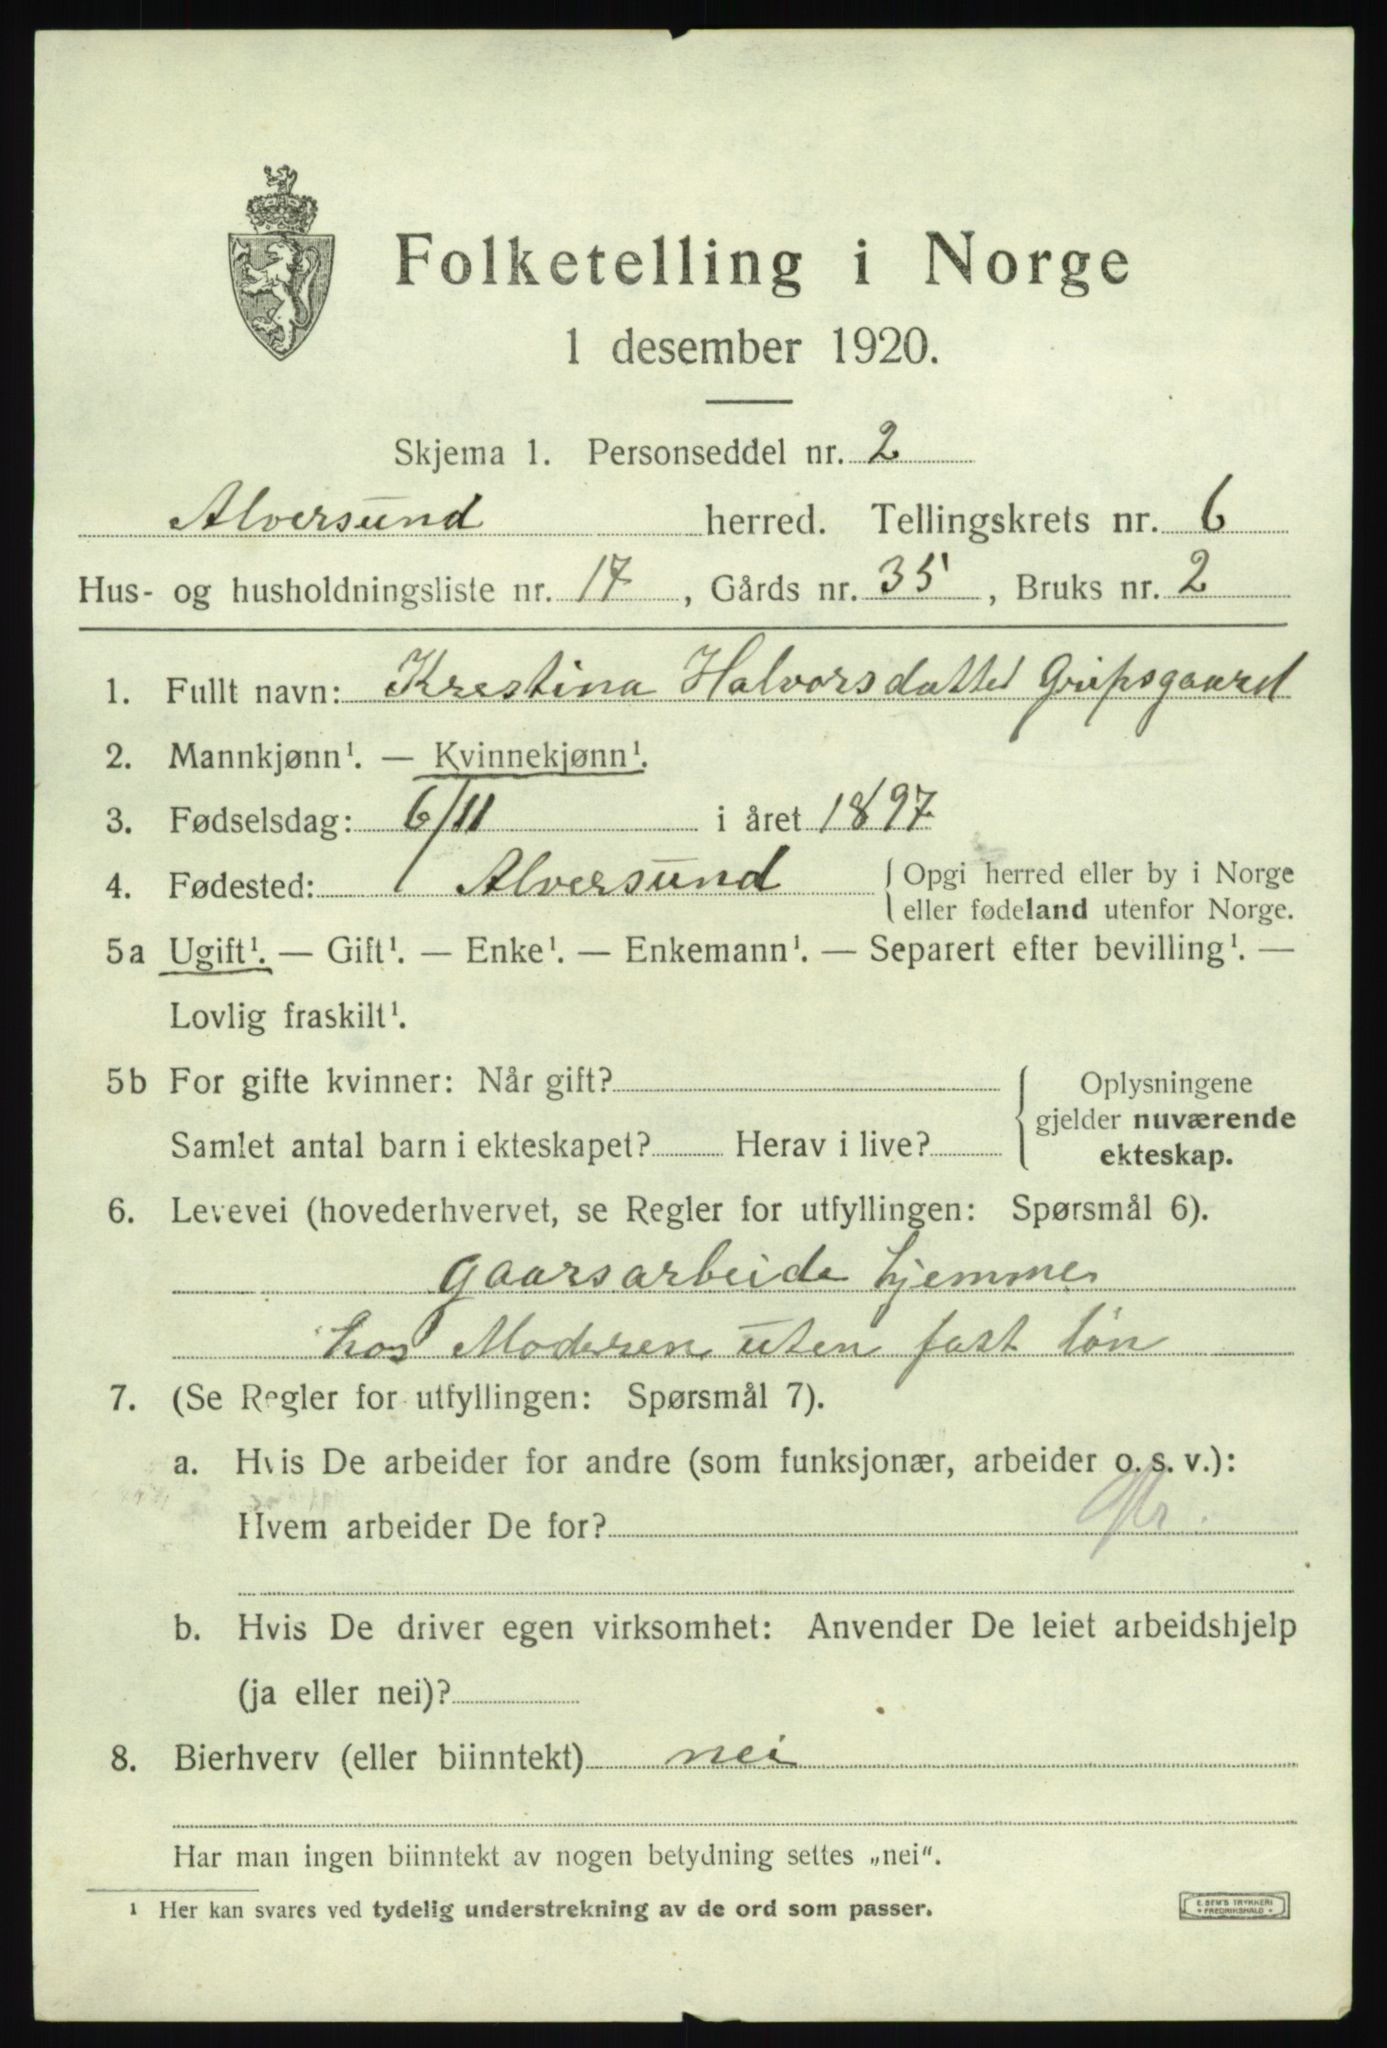 Folketelling i Norge
1 desember 1920.
Skjema 1. Personseddel nr. 2
Alversund herred. Tellingskrets nr. 6
Hus- og husholdningsliste nr. 17, Gårds nr. 35, Bruks nr. 2
1. Fullt navn: Krestina Halvorsdatter Gripsgaard
2. Mannkjønn¹. — Kvinnekjønn¹.
3. Fødselsdag: 6/11 i året 1897
4. Fødested: Alversund { Opgi herred eller by i Norge
eller fødeland utenfor Norge.
5a Ugift¹. — Gift¹. — Enke¹. — Enkemann¹. — Separert efter bevilling¹. —
Lovlig fraskilt¹.
5b For gifte kvinner: Når gift?
Samlet antal barn i ekteskapet? Herav i live?
Oplysningene
gjelder nuværende
ekteskap.
6. Levevei (hovederhvervet, se Regler for utfyllingen: Spørsmål 6).
gaarsarbeide hjemme
hos Moderen uten fast løn
7. (Se Regler for utfyllingen: Spørsmål 7).
a. Hvis De arbeider for andre (som funksjonær, arbeider o. s. v.):
Hvem arbeider De for?
b. Hvis De driver egen virksomhet: Anvender De leiet arbeidshjelp
(ja eller nei)?
8. Bierhverv (eller biinntekt) nei
Har man ingen biinntekt av nogen betydning settes „nei".
¹ Her kan svares ved tydelig understrekning av de ord som passer.
E. SEM'S TRYKKERI
FREDRIKSHALD